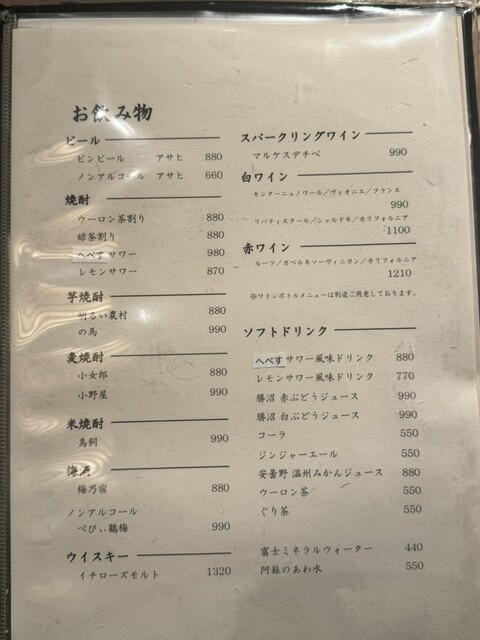 お飲み物
ビール
ビンビール アサヒ 880
ノンアルコール アサヒ 660
焼酎
ウーロン茶割り 880
緑茶割り 880
へべすサワー 980
レモンサワー 870
芋焼酎
明るい農村 880
の馬 990
麦焼酎
小女郎 880
小野屋 990
米焼酎
鳥飼 990
梅酒
梅乃宿 880
ノンアルコール
べびぃ鶴梅 990
ウイスキー
イチローズモルト 1320
スパークリングワイン
マルケスデチベ 990
白ワイン
モンターニュノワール/ヴィオニエ/フランス
990
リバティスクール/シャルドネ/カリフォルニア
1100
赤ワイン
ルーツ/カベルネソーヴィニヨン/カリフォルニア
1210
※ワインボトルメニューは別途ご用意しております。
ソフトドリンク
へべすサワー風味ドリンク 880
レモンサワー風味ドリンク 770
勝沼 赤ぶどうジュース 990
勝沼 白ぶどうジュース 990
コーラ 550
ジンジャーエール 550
安曇野 温州みかんジュース 880
ウーロン茶 550
ぐり茶 550
富士ミネラルウォーター 440
阿蘇のあわ水 550